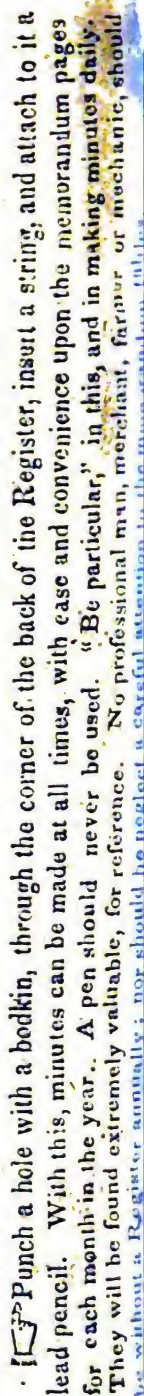 ☞Punch a hole with a bodkin, through the corner of the back of the Register, insurt a string, and attach to it a
lead pencil. With this, minutes can be made at all times, with ease and convenience upon the memorandum pages
for each month in the year. A pen should never be used. "Be particular," in this, and in making minutes daily.
They will be found extremely valuable, for reference. No professional man, merchant, farmer or mechanic, should
be without a Register annually; nor should he neglect a careful attention to the memorandum